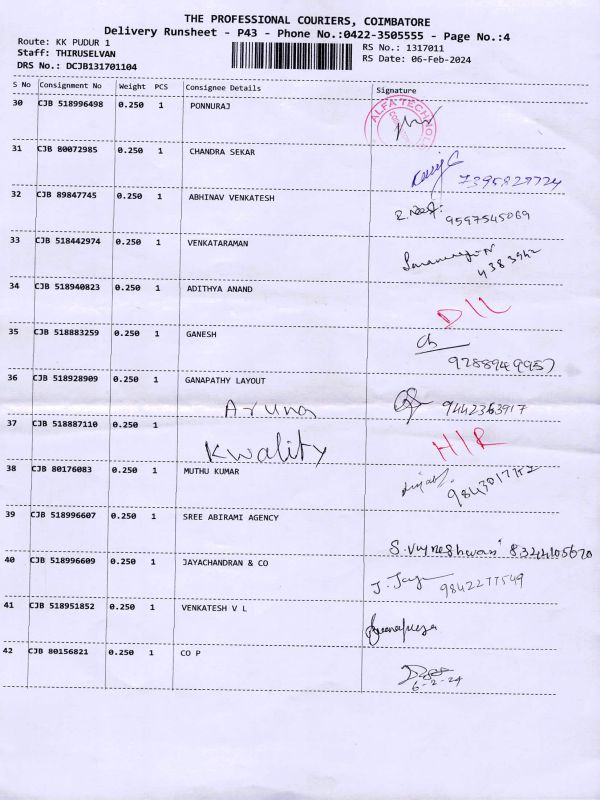 THE PROFESSIONAL COURIERS, COIMBATORE
Delivery Runsheet - P43 - Phone No.:0422-3505555 - Page No.:4
Route: KK PUDUR 1
RS No.: 1317011
Staff: THIRUSELVAN
RS Date: 06-Feb-2024
DRS No.: DCJB131701104
S No Consignment No Weight PCS Consignee Details Signature
30 CJB 518996498 0.250 1 PONNURAJ
ALFA TECHNOL
31 CJB 80072985 0.250 1 CHANDRA SEKAR
7395827724
32 CJB 89847745 0.250 1 ABHINAV VENKATESH
9597545069
33 CJB 518442974 0.250 1 VENKATARAMAN
4383942
34 CJB 518940823 0.250 1 ADITHYA ANAND
D/L
35 CJB 518883259 0.250 1 GANESH
9288949957
36 CJB 518928909 0.250 1 GANAPATHY LAYOUT
Aruna 9442363917
37 CJB 518887110 0.250 1
Kwality H/R
38 CJB 80176083 0.250 1 MUTHU KUMAR
39 CJB 518996607 0.250 1 SREE ABIRAMI AGENCY
8344105670
40 CJB 518996609 0.250 1 JAYACHANDRAN & CO
9842277549
41 CJB 518951852 0.250 1 VENKATESH V L
42 CJB 80156821 0.250 1 CO P
6-2-24